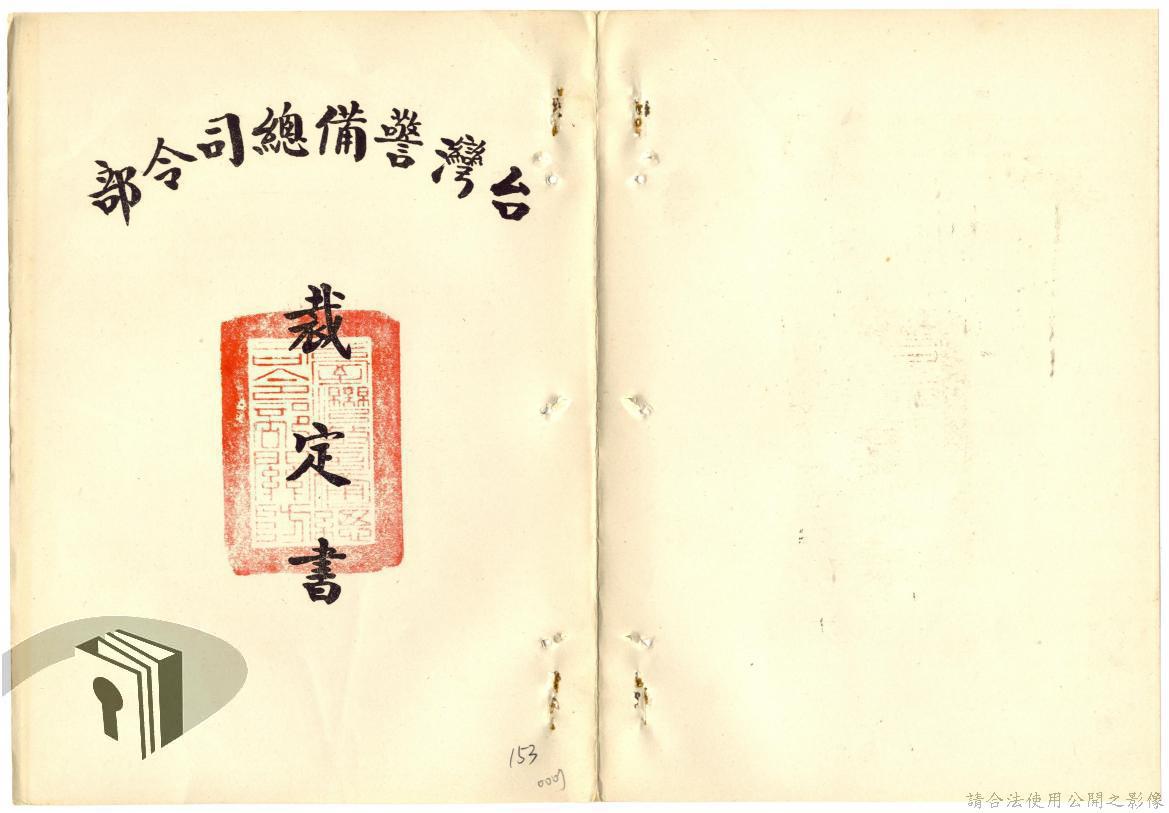 台灣警備總司令部
裁定書
153
請合法使用公開之影像